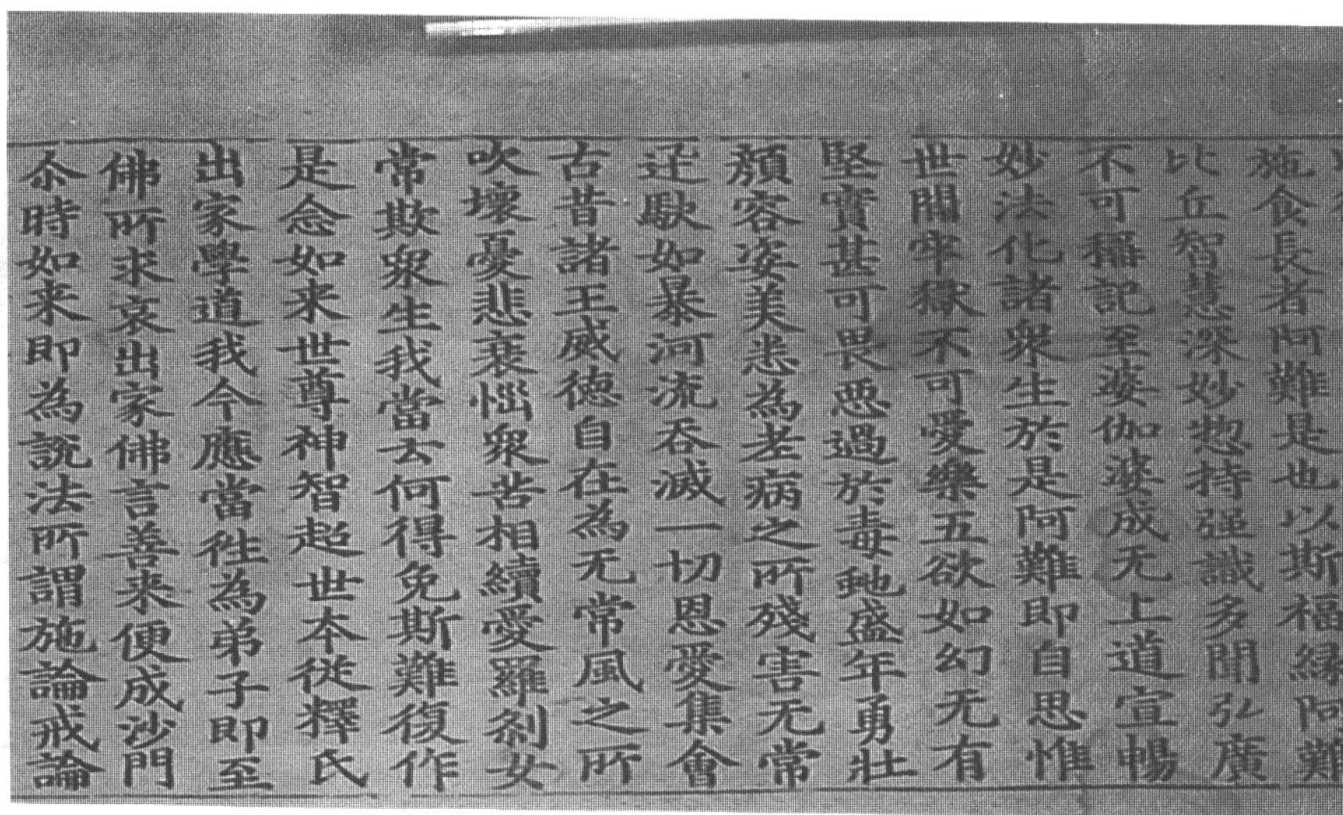 施食長者阿難是也以斯福縁阿難
比丘智慧深妙惣持强識多聞弘廣
不可稱記至婆伽婆成无上道宣暢
妙法化諸衆生於是阿難即自思惟
世間牢獄不可愛樂五欲如幻无有
堅實甚可畏惡過於毒虵盛年勇壯
顏容姿美悉為老病之所殘害无常
迅駃如暴河流吞滅一切恩愛集會
古昔諸王威德自在為无常風之所
吹壞憂悲衰惱衆苦相續愛羅刹女
常欺衆生我當云何得免斯難復作
是念如来世尊神智超世本從釋氏
出家學道我今應當往為弟子即至
佛所求哀出家佛言善来便成沙門
尒時如来即為說法所謂施論戒論